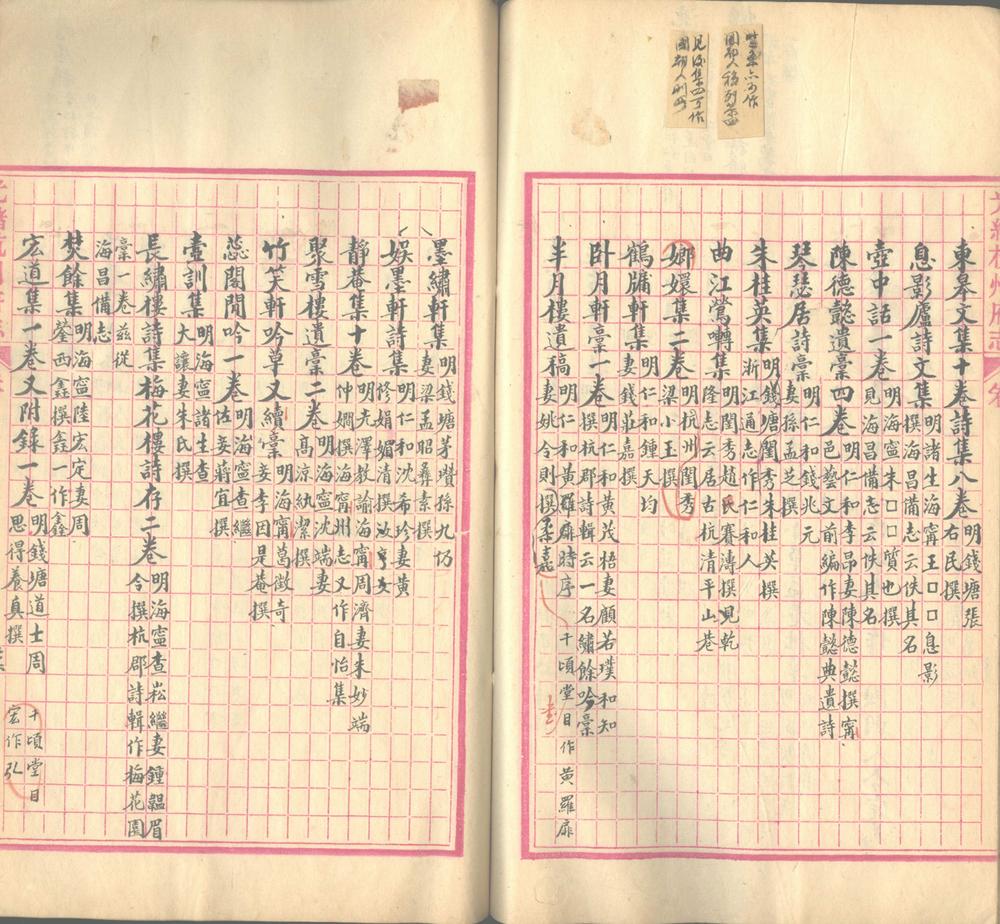 東皋文集十卷詩集八卷 明錢塘張右民撰
息影廬詩文集 明諸生海寧王□□息影撰海昌備志云佚其名
壺中話一卷 明海寧朱□□質也撰見海昌備志云佚其名
陳德懿遺稾四卷 明仁和李昂妻陳德懿撰寧邑藝文前編作陳懿典遺詩
琴瑟居詩稾 明仁和錢兆元妻孫孟芝撰
朱桂英集 明錢塘閨秀朱桂英撰浙江通志作仁和人
曲江鶯囀集 明閨秀趙氏賽濤撰見乾隆志云居古杭清平山巷
鄉嬛集二卷 明杭州閨秀梁小玉撰
鶴牕集 明仁和鍾天均妻錢莊嘉撰
卧月軒稾一卷 明仁和黄茂梧妻顧若璞和知撰杭郡詩輯云一名繡餘吟稾
半月樓遺稿 明仁和黄羅扉時序妻姚令則撰柔嘉 千頃堂目作黄羅扉
墨繡軒集 明錢塘茅瓚孫九仍妻梁孟昭彞素撰
娱墨軒詩集 明仁和沈希珍妻黄修娟媚清撰
靜菴集十卷 明光澤教諭海寧周濟妻朱妙端仲嫺撰海寧州志又作自怡集
聚雪樓遺稾二卷 明海寧沈端妻高涼紈潔撰
竹笑軒吟草又續稾 明海寧葛徵奇妾李因是菴撰
蕊閣閒吟一卷 明海寧查繼佐妾蔣宜撰
壼訓集 明海寧諸生查大讓妻朱氏撰
長繡樓詩集梅花樓詩存二卷 明海寧查崧繼妻鍾韞眉令撰杭郡詩輯作梅花園
稾一卷兹從海昌備志
焚餘集 明海寧陸宏定妻周蓥西鑫撰鑫一作鑫
宏道集一卷又附錄一卷 明錢塘道士周思得養真撰 千頃堂目宏作弘